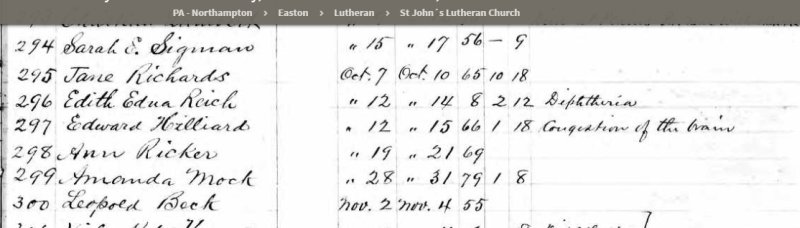 PA - Northampton › Easton › Lutheran › St John´s Lutheran Church
294 Sarah E. Sigman " 15 " 17 56 — 9
295 Jane Richards Oct. 7 Oct. 10 65 10 18
296 Edith Edna Reich " 12 " 14 8 2 12 Diphtheria
297 Edward Hilliard " 12 " 15 66 1 18 Congestion of the brain
298 Ann Ricker " 19 " 21 69
299 Amanda Mock " 28 " 31 79 1 8
300 Leopold Beck Nov. 2 Nov. 4 55